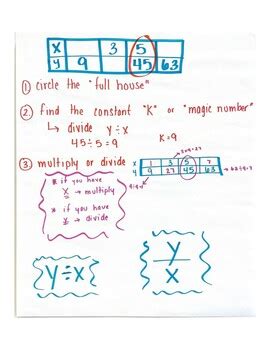 x 3 5
y 9 45 63
① circle the "full house"
② find the constant "K" or "magic number"
↳ divide y÷x
45÷5=9 K=9
③ multiply or divide
* if you have
x → multiply
* if you have
→ divide
x 1 3 5 7
y 9 27 45 63
y÷x
y
x